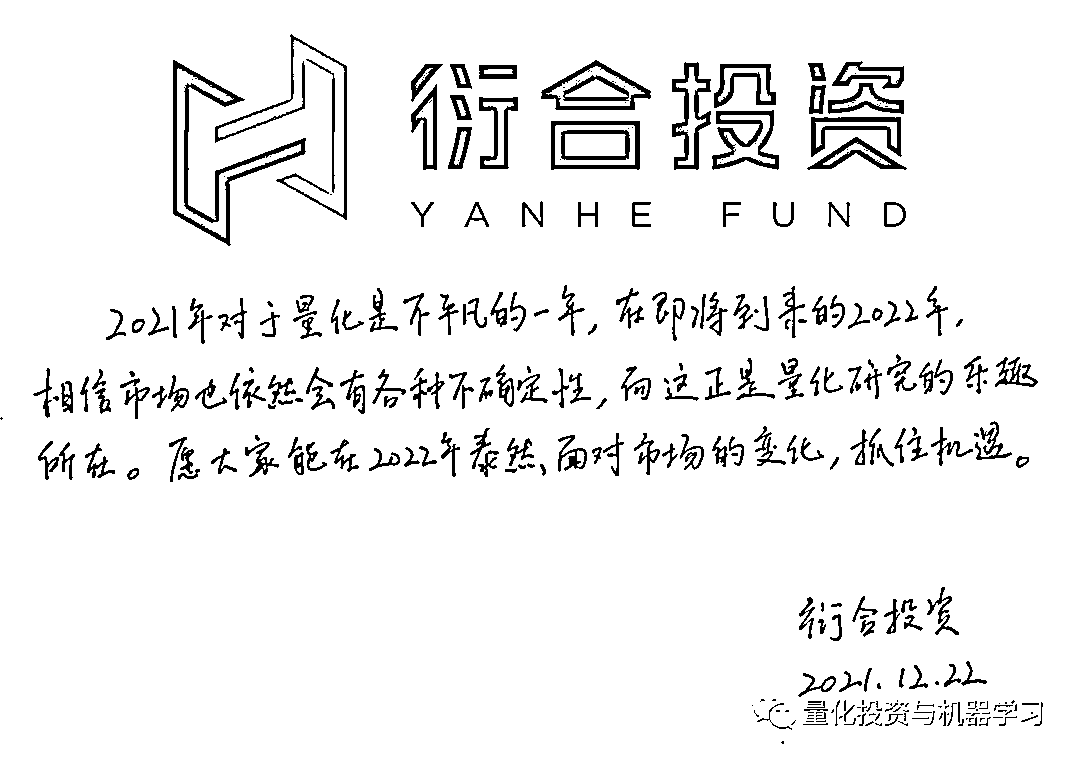 衍合投资
YANHE FUND
2021年对于量化是不平凡的一年,在即将到来的2022年,
相信市场也依然会有各种不确定性,而这正是量化研究的乐趣
所在。愿大家能在2022年泰然面对市场的变化,抓住机遇。
衍合投资
2021.12.22
量化投资与机器学习